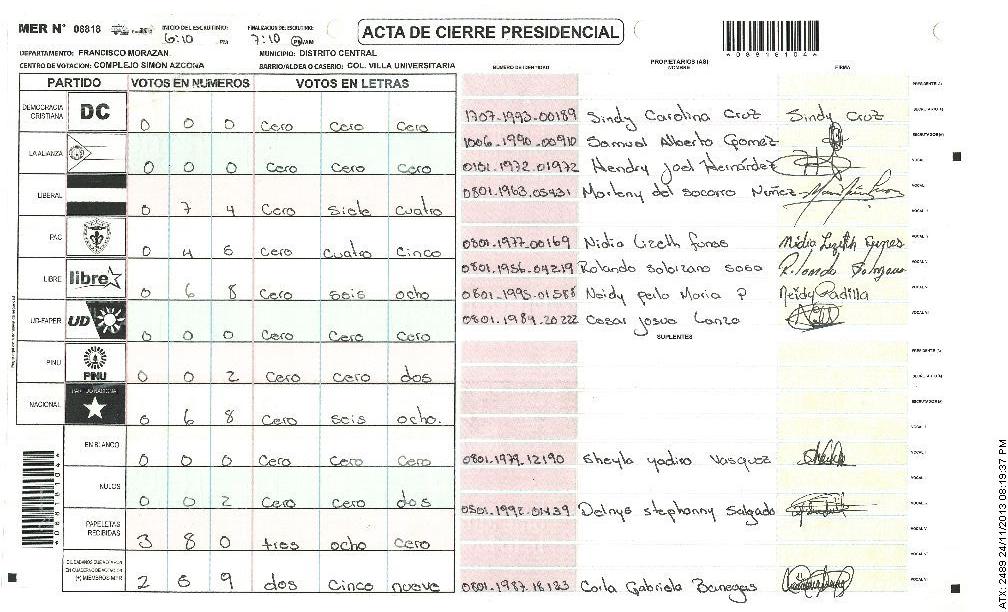 MER N° 06818 INICIO DEL ESCRUTINIO: 6:10 PM FINALIZACION DEL ESCRUTINIO: 7:10 PM/AM
ACTA DE CIERRE PRESIDENCIAL
*08818104*
DEPARTAMENTO: FRANCISCO MORAZAN MUNICIPIO: DISTRITO CENTRAL
CENTRO DE VOTACION: COMPLEJO SIMON AZCONA BARRIO/ALDEA O CASERIO: COL. VILLA UNIVERSITARIA
PARTIDO VOTOS EN NUMEROS VOTOS EN LETRAS
DEMOCRACIA CRISTIANA DC 0 0 0 Cero Cero Cero
LA ALIANZA 0 0 0 Cero Cero Cero
LIBERAL 0 7 4 Cero Siete Cuatro
PAC 0 4 5 Cero Cuatro Cinco
LIBRE libre 0 6 8 Cero seis ocho
UD-FAPER UD 0 0 0 Cero Cero Cero
PINU PINU 0 0 2 Cero Cero dos
NACIONAL 0 6 8 Cero seis ocho.
EN BLANCO 0 0 0 Cero Cero Cero
NULOS 0 0 2 Cero Cero dos
PAPELETAS RECIBIDAS 3 8 0 tres ocho Cero
CIUDADANOS QUE VOTARON
EN CUADERNO DE VOTACION
(+) MIEMBROS MER 2 5 9 dos Cinco nueve
NUMERO DE IDENTIDAD PROPIETARIOS (AS) NOMBRE FIRMA
PRESIDENTE (A)
1707-1993-00189 Sindy Carolina Cruz Sindy Cruz SECRETARIO (A)
1006-1990-00910 Samuel Alberto Gomez ESCRUTADOR (A)
0101-1972-01972 Hendry Joel Hernández VOCAL I
0801-1963-05431 Marleny del Socorro Nuñez VOCAL II
VOCAL III
0801-1977-00169 Nidia Lizeth Funes Nidia Lizeth Funes VOCAL IV
0801-1956-04219 Rolando Solorzano Sosa
0801-1995-01588 Neidy Perla Maria P Neidy Padilla
0801-1989-20222 Cesar Josue Lanza
SUPLENTES
PRESIDENTE (A)
SECRETARIO (A)
ESCRUTADOR (A)
0801-1979-12190 Sheyla Yadira Vasquez
0801-1992-01439 Delnys Stephanny Salgado
0801-1987-18123 Carla Gabriela Banegas
ATX-2489 24/11/2013 08:19:37 PM